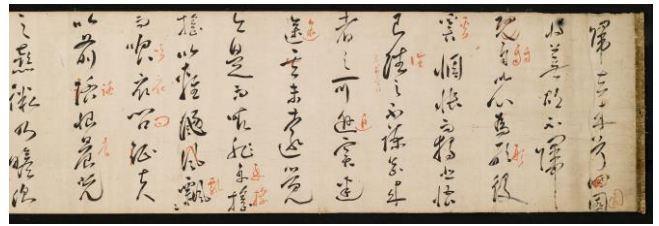 歸去來兮田園
將蕪胡不歸
既自以心為形役
奚惆悵而獨悲悟
已往之不諫知來
者之可追實迷
途其未遠覺
今是而昨非舟搖
搖以輕颺風飄〻
而吹衣問征夫
以前路恨晨光
之熹微乃瞻衡